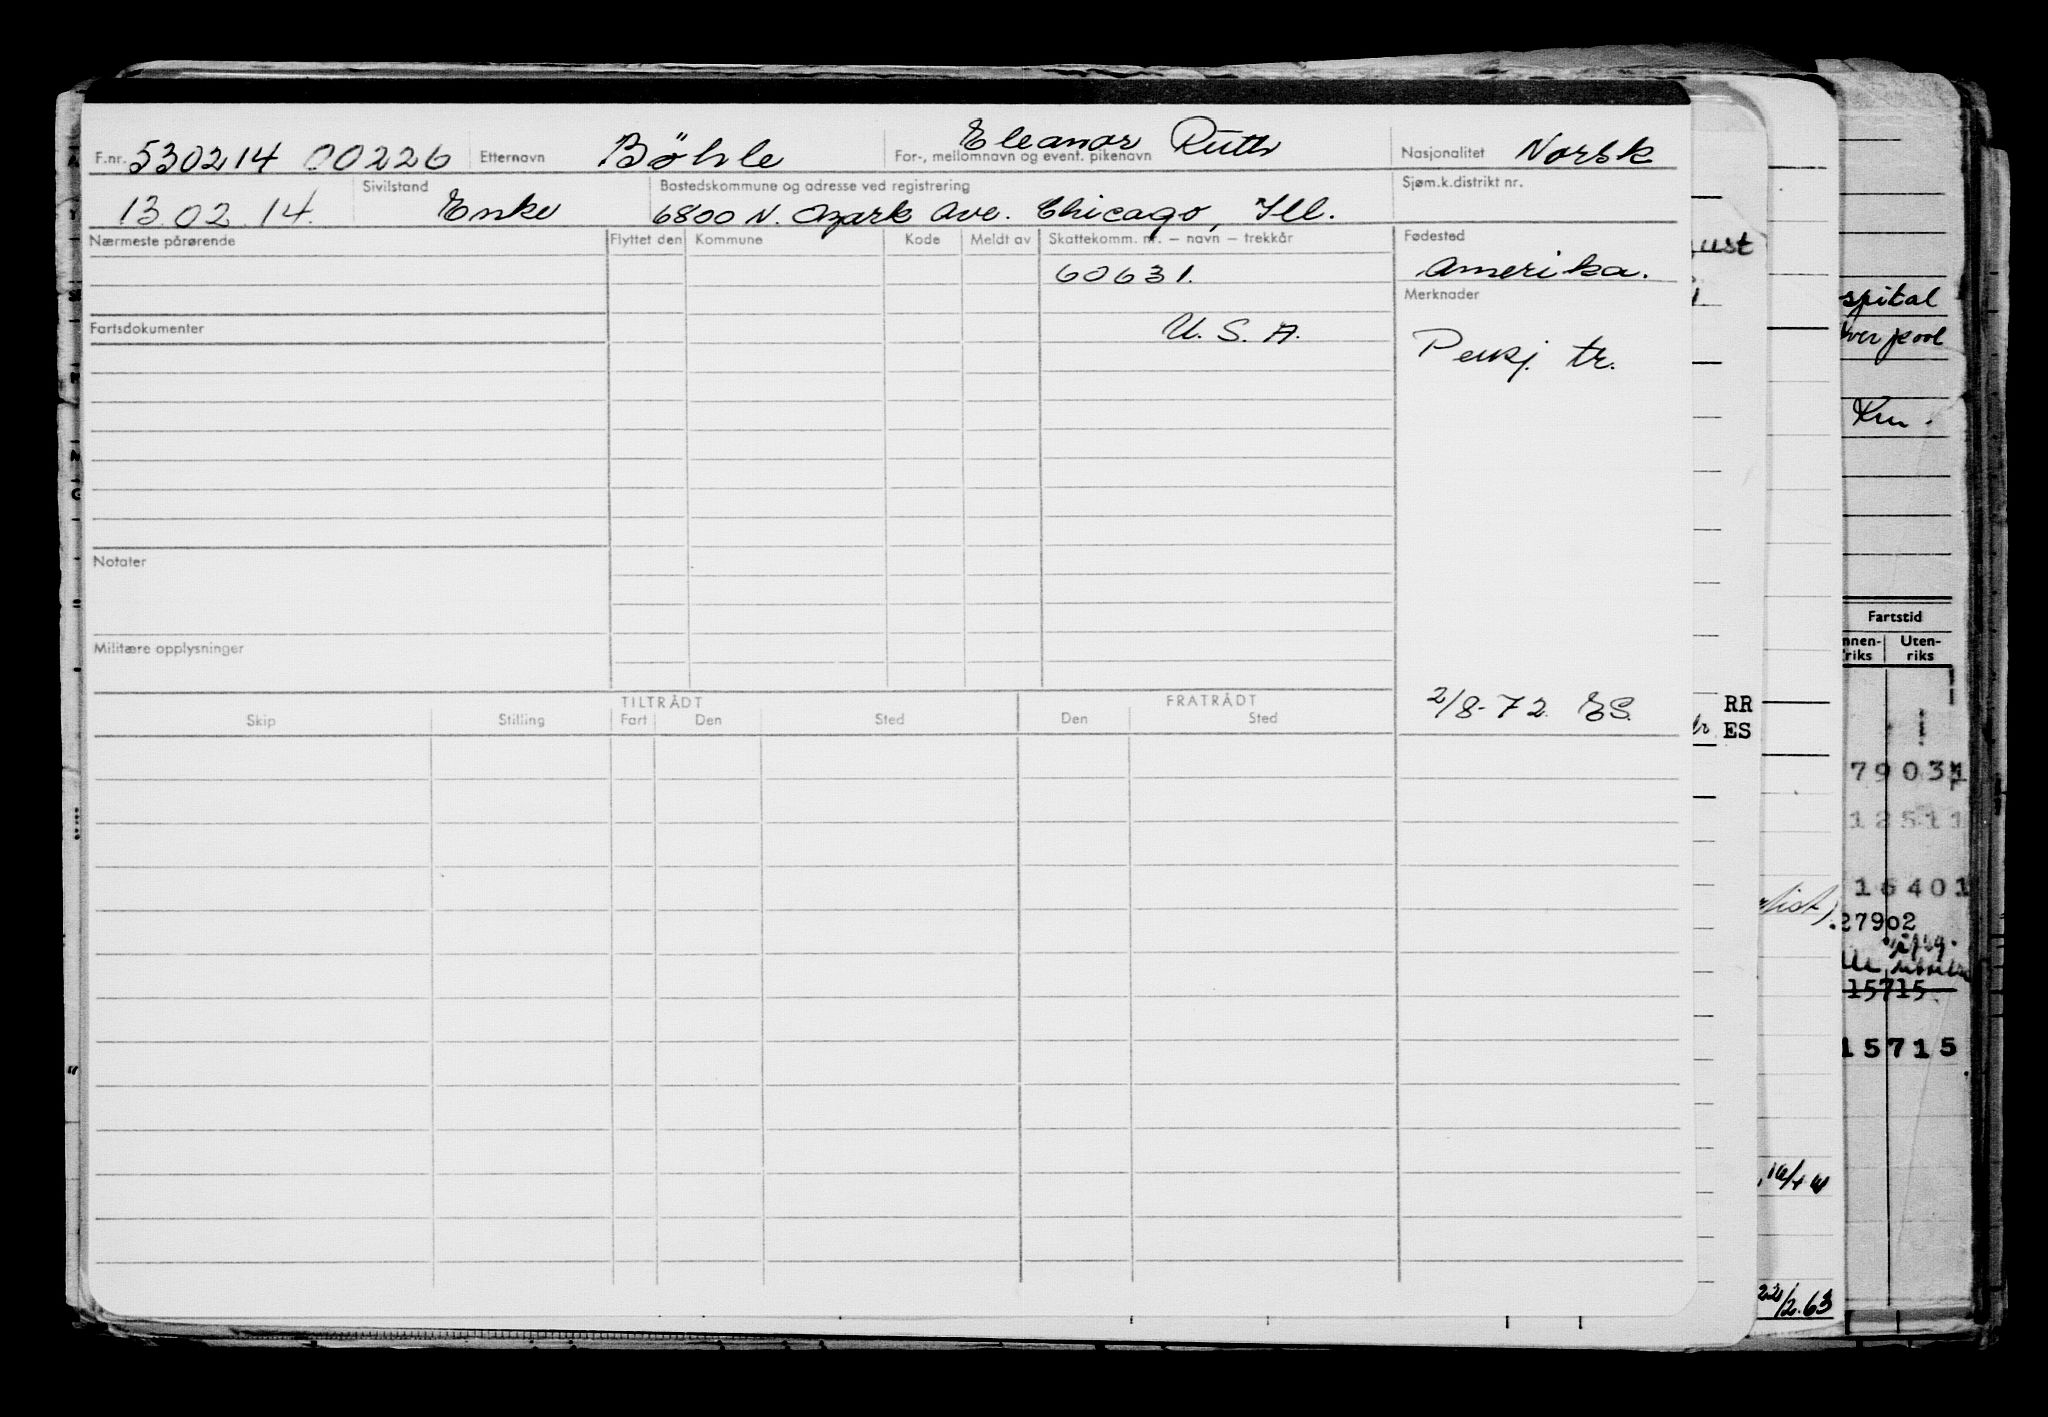 F.nr. 530214 00226 Etternavn Böhle For-, mellomnavn og event. pikenavn Eleanor Ruth Nasjonalitet Norsk
13.02.14. Sivilstand Enke Bostedskommune og adresse ved registrering 6800 N. Ozark Ave. Chicago, Ill. Sjøm.k.distrikt nr.
Nærmeste pårørende Flyttet den Kommune Kode Meldt av Skattekomm. nr. – navn – trekkår Fødested
60631. Amerika.
Merknader
Fartsdokumenter U.S.A. Pensj. tr.
Notater
Militære opplysninger
TILTRÅDT FRATRÅDT 2/8-72. ES.
Skip Stilling Fart Den Sted Den Sted
RR
ES
ust
spital
ver pool
Fartstid
nnen-riks Uten-riks
79031
12511
16401
27902
15715
15715
22/2.63